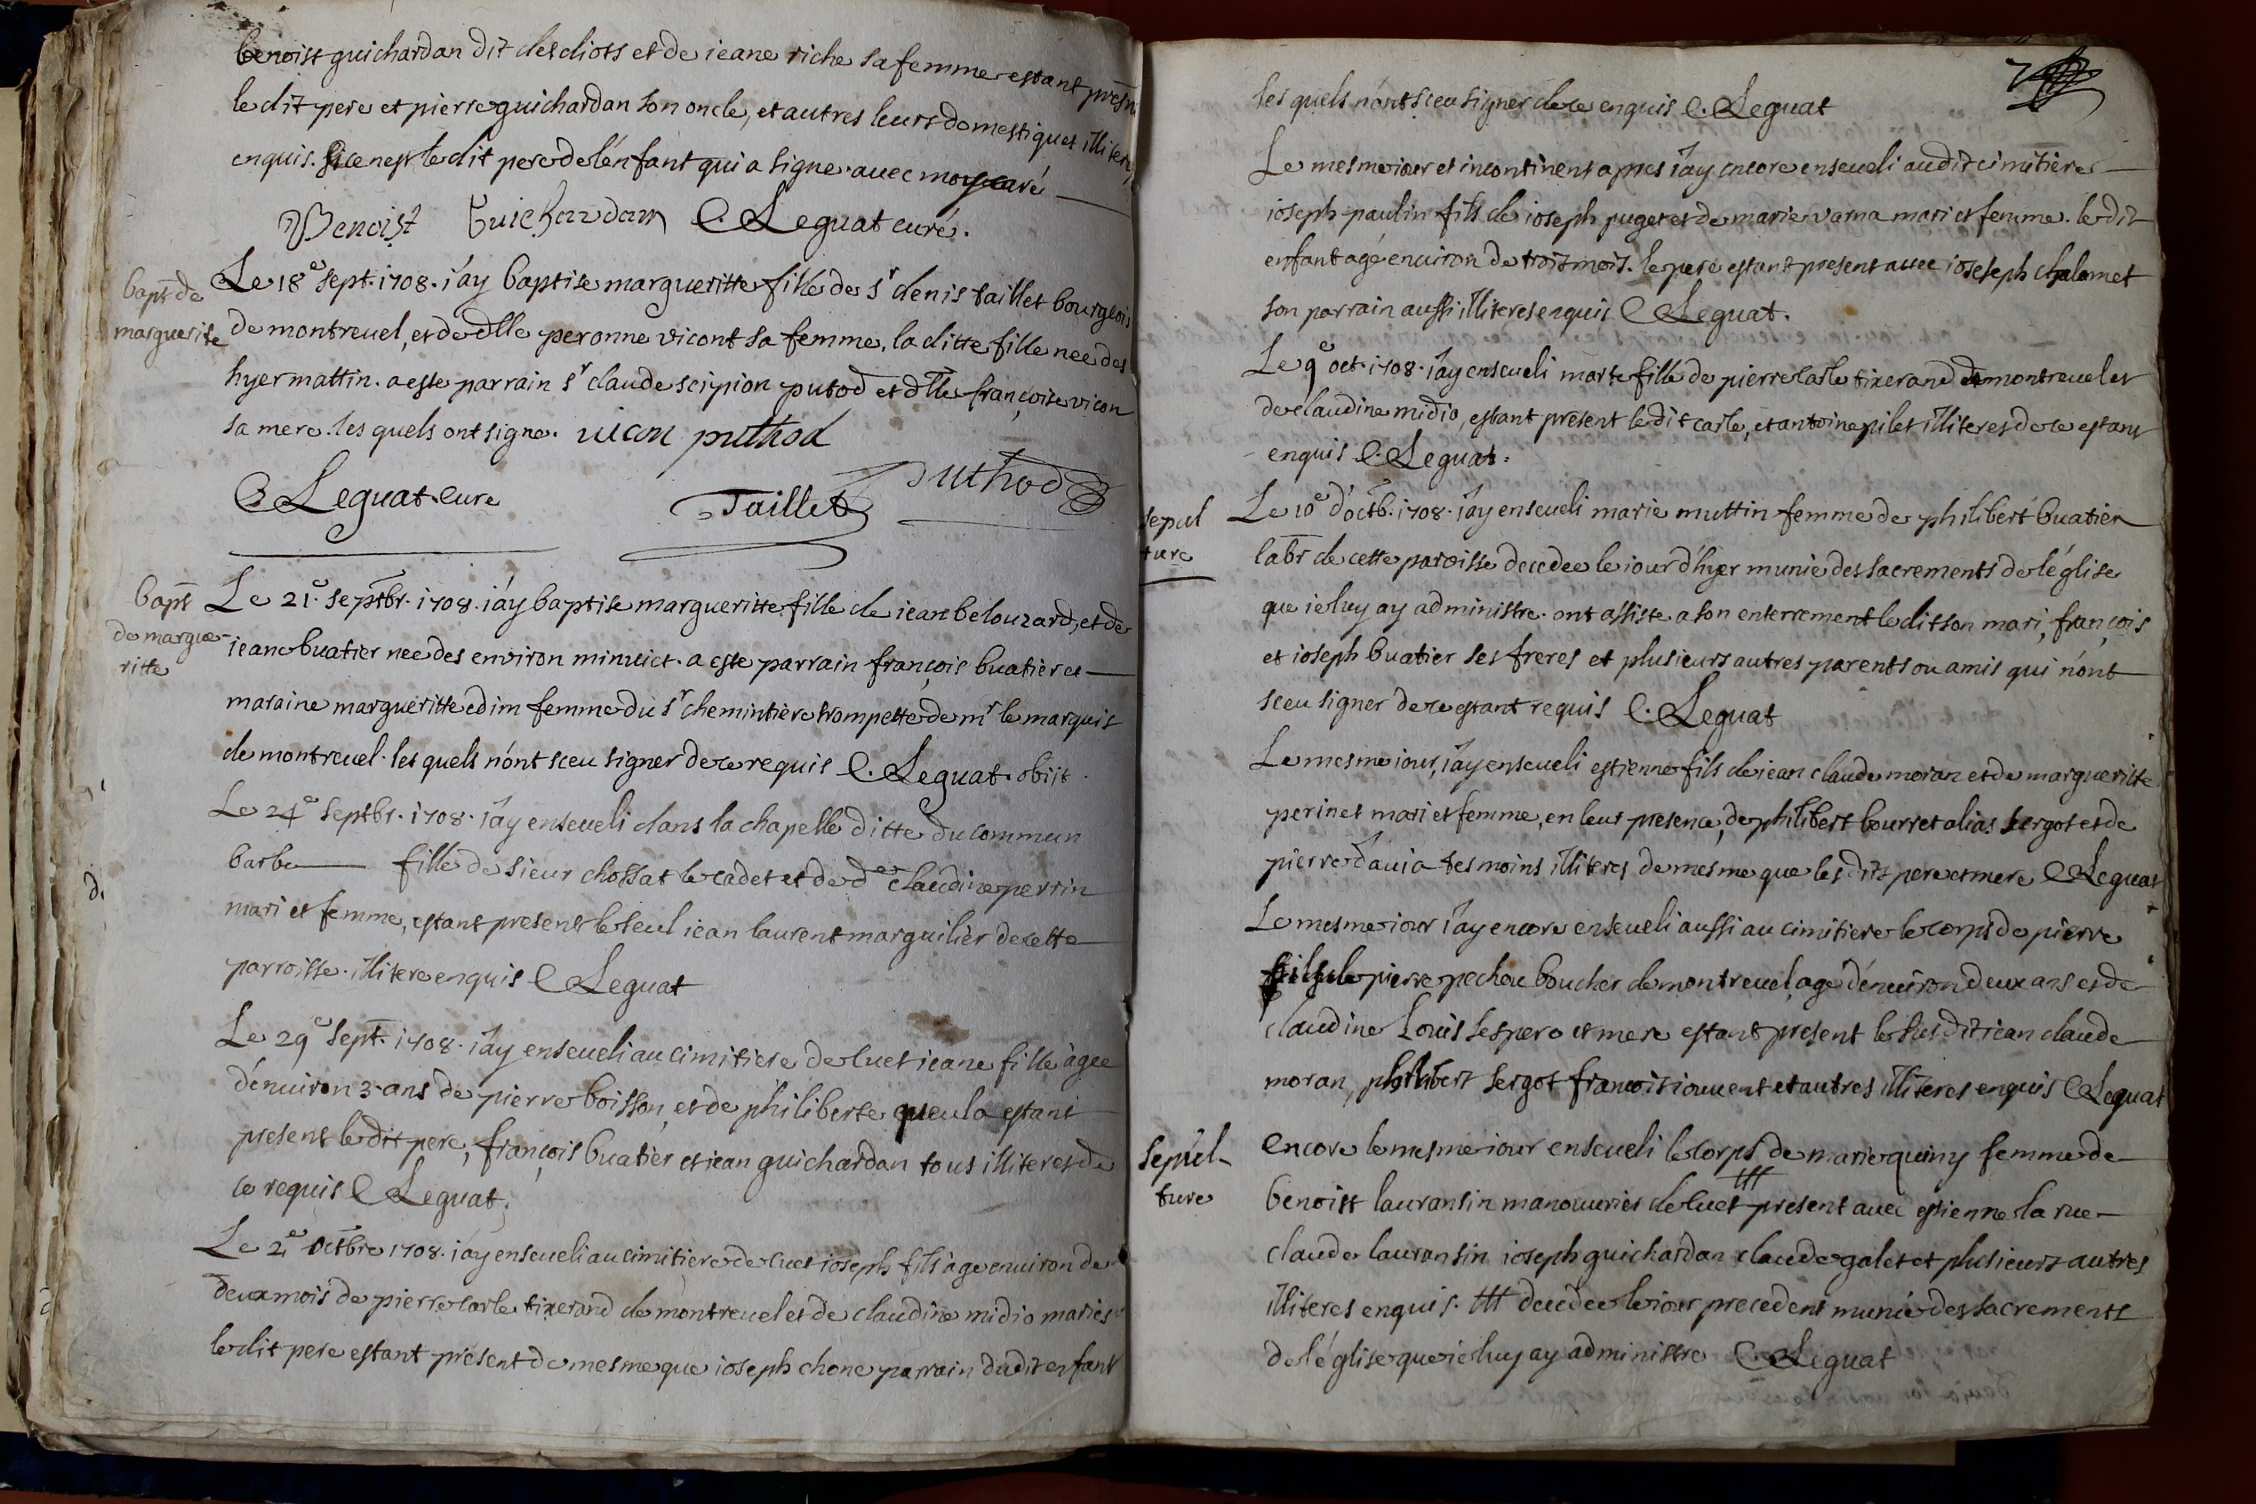 benoist guichardan dit desdiots et de ieane riche sa femme estant presn
le dit pere et pierre guichardan son oncle, et autres leurs domestiques illiteres
enquis. si ce nest le dit pere de l'énfant qui a signe avec moy curé
Benoist Guichardan C. Leguat curé.
bapt. de
marguerite
Le 18e sept. 1708. i'ay baptise margueritte fille de sr denis taillet bourgeois
de montrevel, et de dlle peronne vicont sa femme, la ditte fille nee des
hyer mattin. a este parrain sr claude scipion putod et dlle françoise vicon
sa mere. les quels ont signe. vicon puthod
C Leguat. Cure Taillet Puthod
bapt
de margue-
ritte
Le 21e septbr. 1708. i'áy baptise margueritte fille de iean belouzard, et de
ieane buatier nee des environ minuict. a este parrain françois buatier et
maraine margueritte edim femme du sr chemintière trompette de mr le marquis
de montrevel. les quels n'ónt sceu signer de ce requis C. Leguat. obiit
Le 24e septbr. 1708. i'áy enseueli dans la chapelle ditte du commun
barbe fille de sieur chossat le cadet et de der claudine perrin
mari et femme, estant present le seul iean laurent marguilier de cette
parroisse. illitere enquis C Leguat
Le 29e sept. 1708. i'áy enseueli au cimitiere de cuet ieane fille àgee
d'énuiron 3 ans de pierre boisson, et de philiberte queula estant
present le dit pere, françois buatier et iean guichardan tous illiteres de
ce requis C Leguat.
Le 2e octbre 1708. i'áy enseueli au cimitiere de cuet ioseph fils àge enuiron de
deux mois de pierre carle tixerand de montrevel et de claudine midio maries
le dit pere estant présent de mesme que ioseph chone parrain dudit enfant
7
les quels n'ónt sceu signer de ce enquis C. Leguat
Le mesme iour et incontinent apres i'áy encore enseueli audit cimitière
ioseph paulin fils de ioseph puget et de marie varna mari et femme. le dit
enfant agé enuiron de trois mois. le pere estant present auec ioseseph chalamet
son parrain aussi illiteres enquis C Leguat.
Le 9e oct. 1708. i'áy enseueli marte fille de pierre carle tixerand de montrevel et
de claudine midio, estant present le dit carle, et antoine pilet illiteres de ce estant
enquis C. Leguat.
sepul
ture
Le 10e d'octb. 1708. i'áy enseueli marie muttin femme de philibert buatier
labr de cette paroisse decedee le iour d'hyer munie des sacrements de l'église
que ie luy ay administre. ont assiste a son enterrement le dit son mari, françois
et ioseph buatier ses freres et plusieurs autres parents ou amis qui n'ónt
sceu signer de ce estant requis C. Leguat
Le mesme iour, i'áy enseueli estienne fils de iean claude moran et de margueritte
perinet mari et femme, en leur presence, de philibert bourret alias sergot et de
pierre dauia tesmoins illiteres de mesme que les dits pere et mere C Leguat
Le mesme iour i'áy encore enseueli aussi au cimitiere le corps de pierre
fils de pierre pechou boucher de montrevel, agé d'énuiron deux ans et de
claudine Louis ses pere et mere estant present le sus dit iean claude
moran, philibert sergot françois iouuent et autres illiteres enquis C Leguat
sepul-
ture
Encore le mesme iour enseueli le corps de marie quiny femme de
benoist lauransin manouurier de cuet ttt present auec estienne la rue
claude lauransin ioseph guichardan claude galet et plusieurs autres
illiteres enquis. ttt decedee le iour precedent munie des sacrements
de l'église que ie luy ay administre C. Leguat